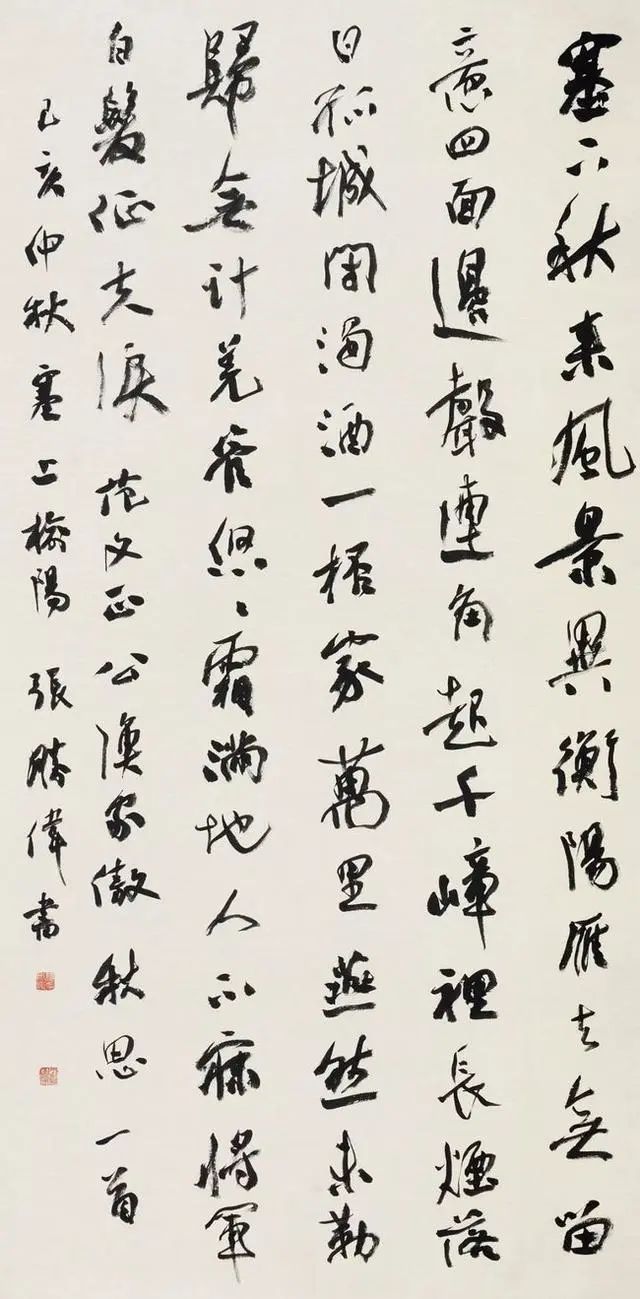 塞下秋来風景異衡陽雁去無留
意四面邊聲連角起千嶂裡長煙落
日孤城閉濁酒一桮家萬里燕然未勒
歸無計羌管悠〻霜滿地人不寐將軍
白髮征夫淚 范文正公漁家傲 秋思 一首
己亥仲秋塞上榆陽 張勝偉書